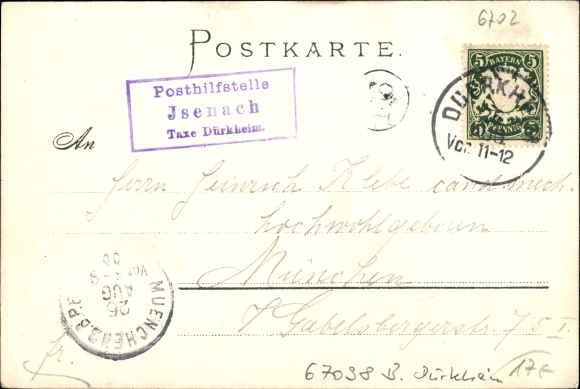 6702
POSTKARTE.
5 BAYERN 5
PFENNIG
DUERKHEIM
Vor. 11-12
Posthilfstelle
Jsenach
Taxe Dürkheim.
An
Herrn Heinrich Klebe cand. mech.
hochwohlgeboren
München
Gabelsbergerstr. 75 I.
MUENCHEN 2.B.P.
26
AUG
VOR
00
fr.
67098 B. Dürkheim
17€